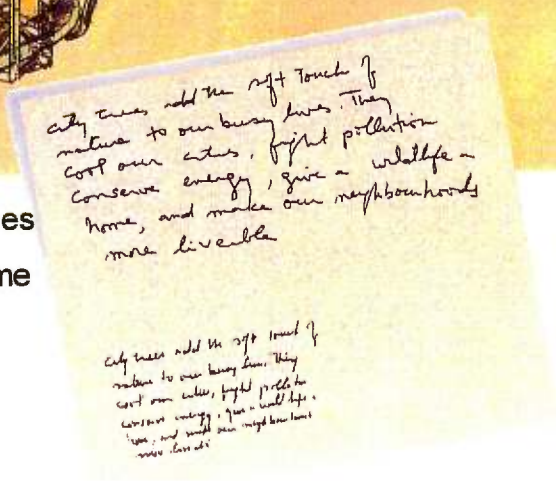 city trees add the soft touch of
nature to our busy lives. They
cool our cities, fight pollution
conserve energy, give a wildlife a
home, and make our neighbourhoods
more liveable
es
me
city trees add the soft touch of
nature to our busy lives. They
cool our cities, fight pollution
conserve energy, give a wild life a
home, and make our neighbourhoods
more